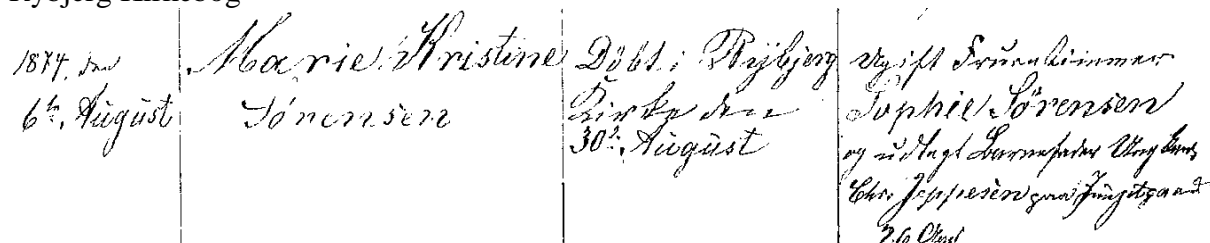 1874, den
6te August
Marie Kristine
Sørensen
Döbt i Rybjerg
Kirke den
30te August
Ugift Fruentimmer
Sophie Sørensen
og udlagt Barnefader Ung
Chr. Jeppesen paa
26 Aar